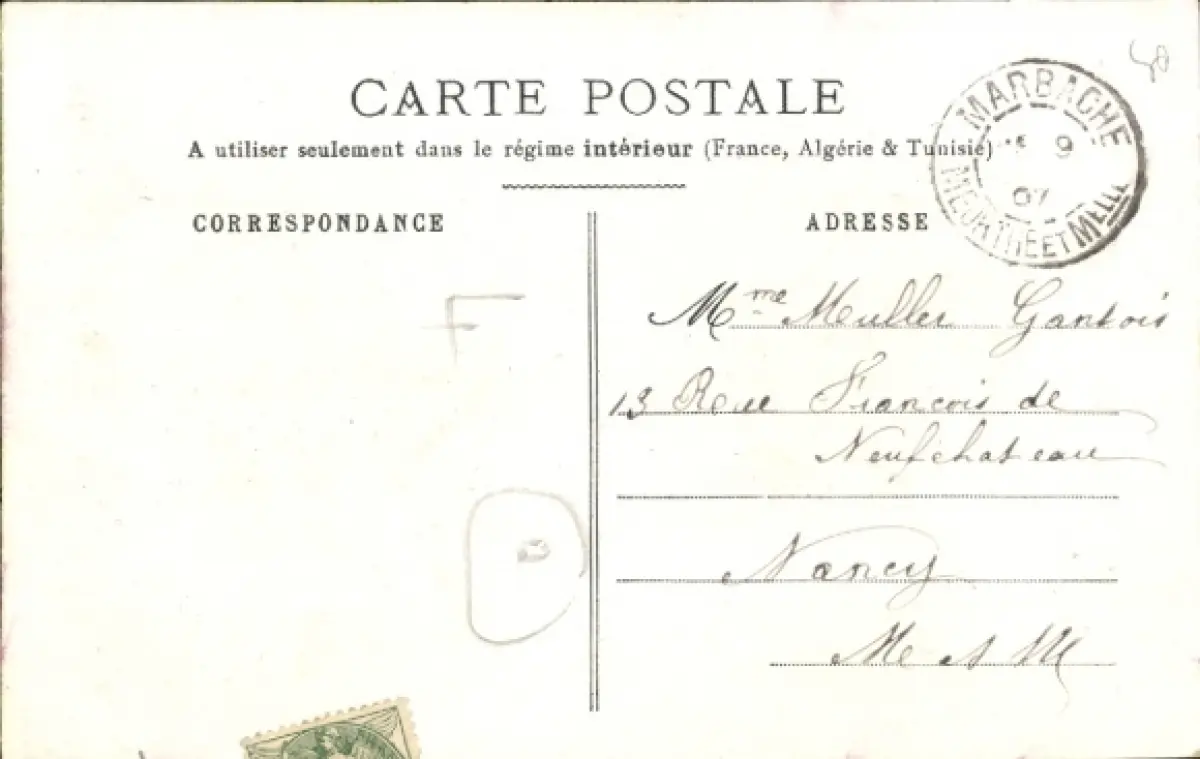 CARTE POSTALE
A utiliser seulement dans le régime intérieur (France, Algérie & Tunisie)
MARBACHE
9
07
MEURTHE ET MELLE
CORRESPONDANCE
ADRESSE
F
Mme Muller Gantois
13 Rue François de
Neufchateau
Nancy
M et M